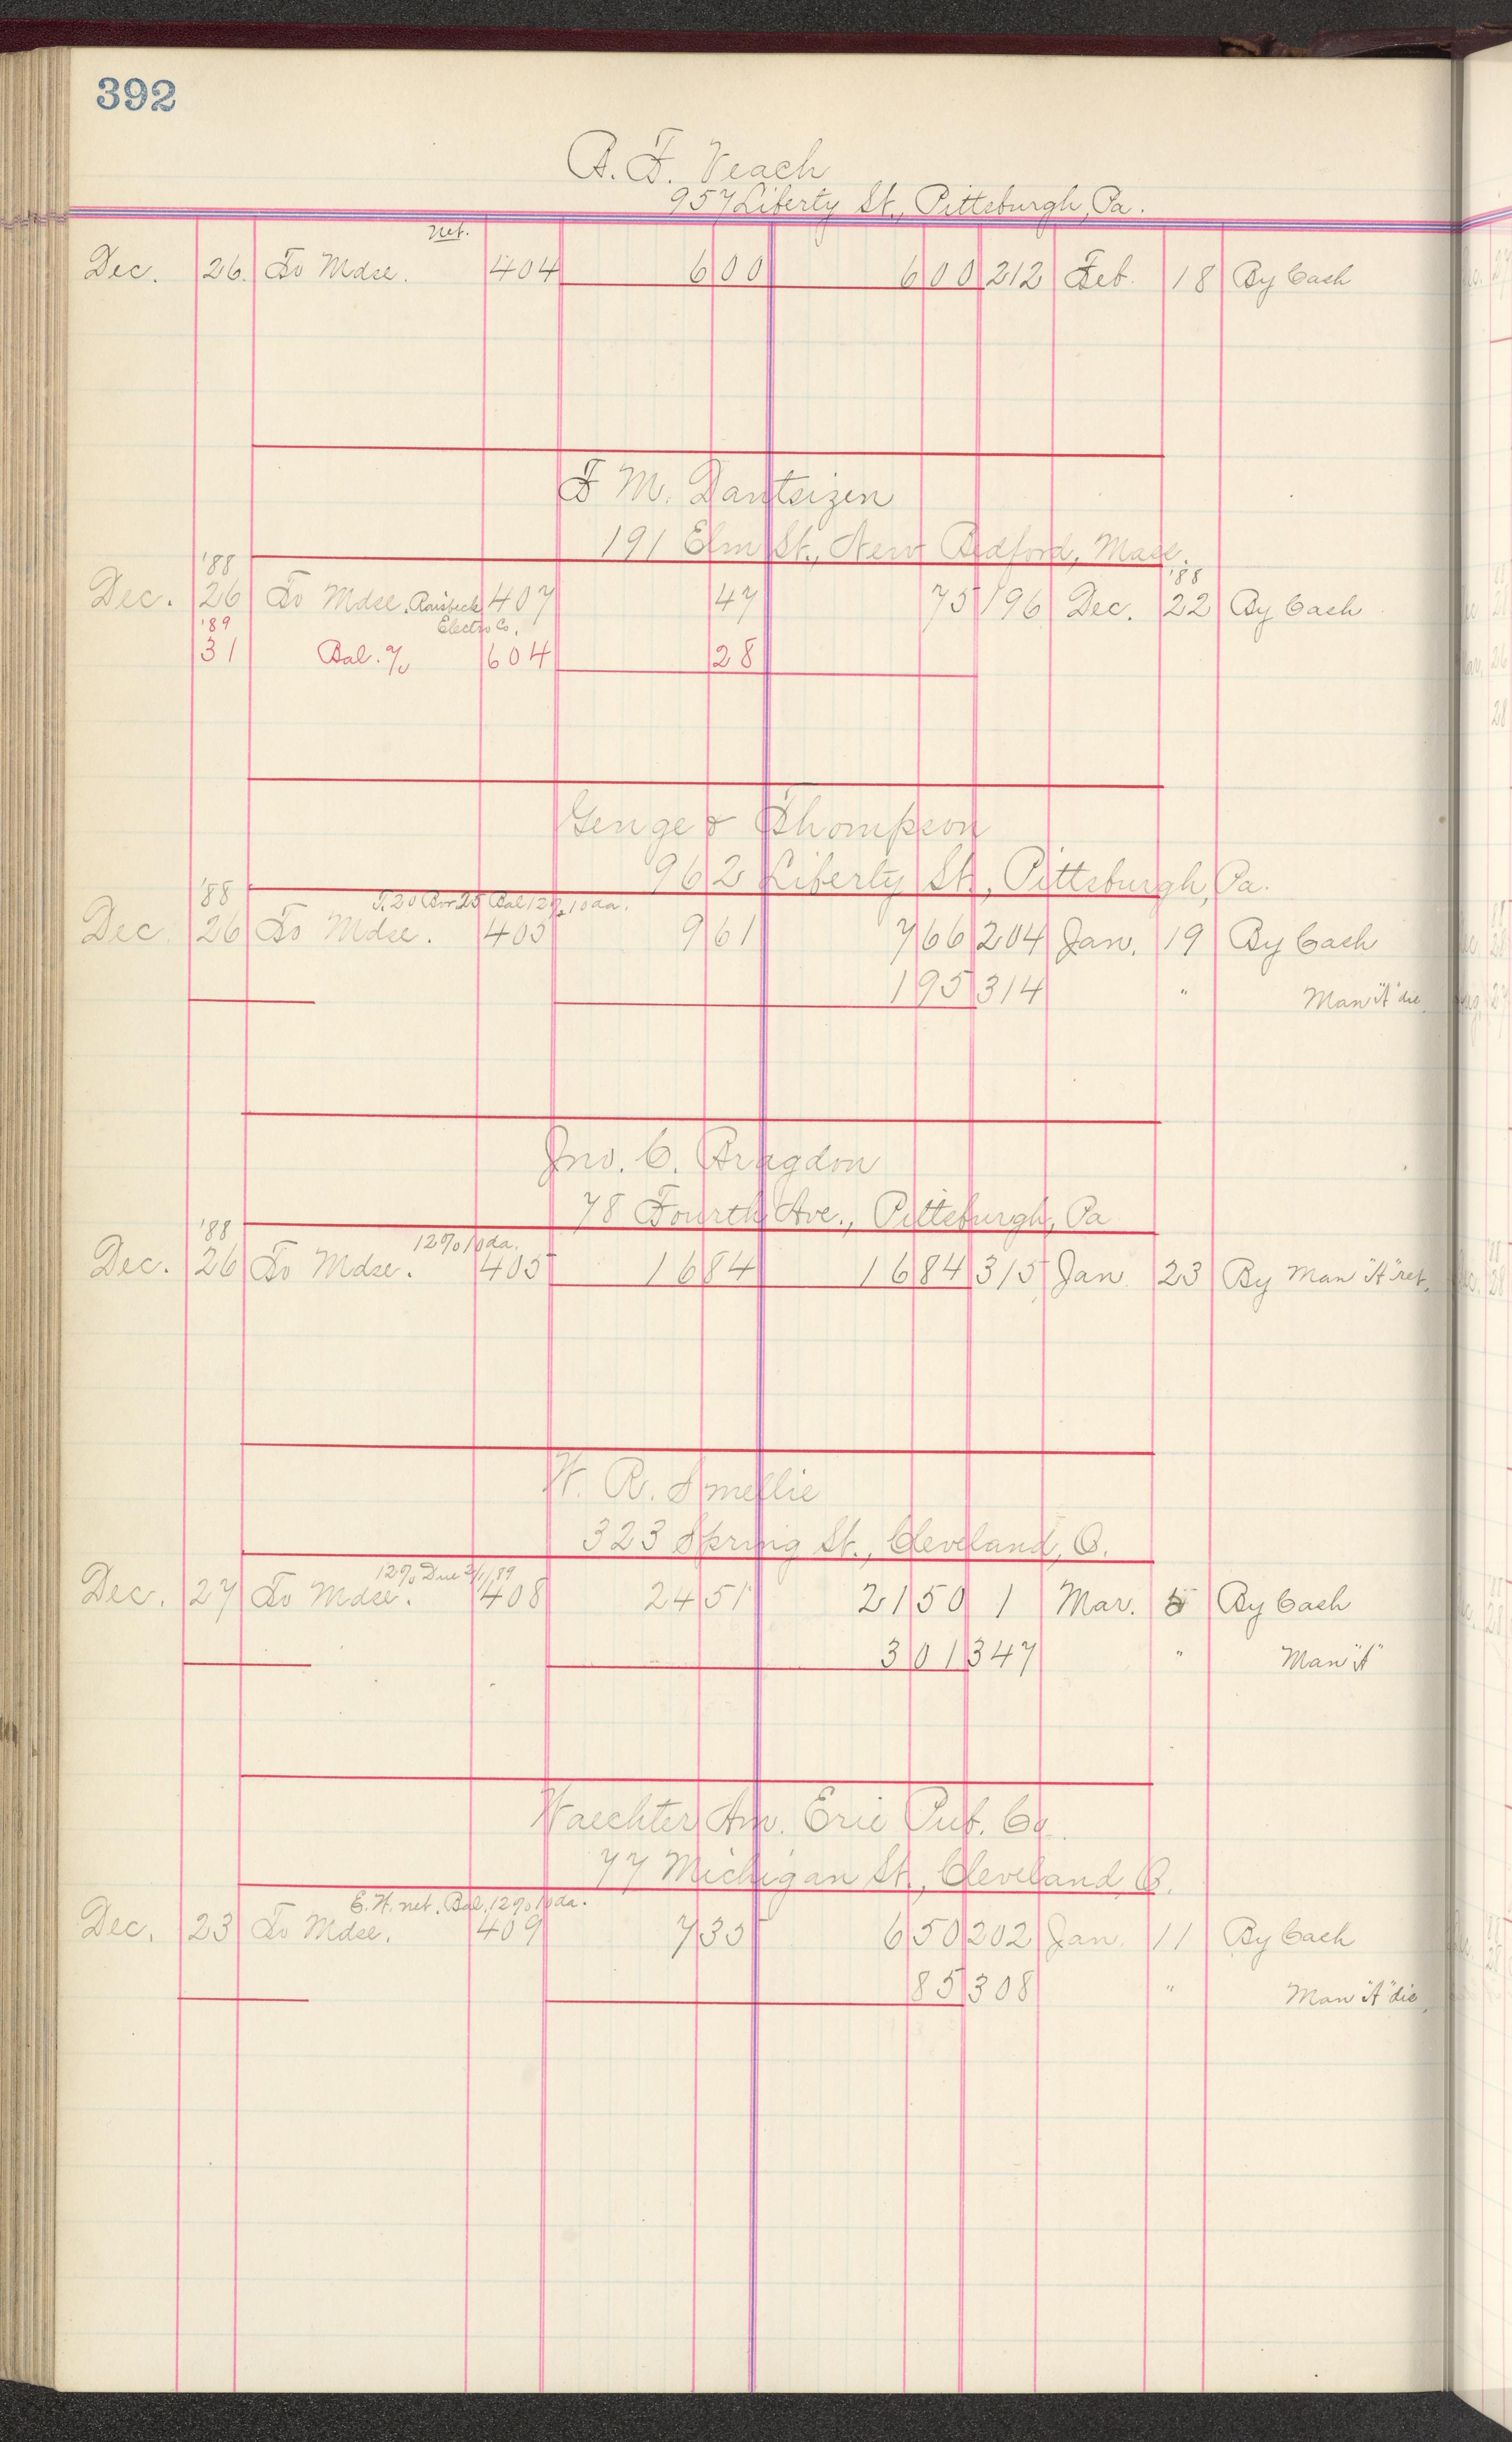 392
A. F. Veach
957 Liberty St., Pittsburgh, Pa.
net.
Dec. 26. To Mdse. 404 6 00 6 00 212 Feb. 18 By Cash
F. M. Dantsizen
191 Elm St., New Bedford, Mass.
'88 '88
Dec. 26 To Mdse. 407 47 75 196 Dec. 22 By Cash
'89 Electro Co.
31 Bal. % 604 28
Genge & Thompson
962 Liberty St., Pittsburgh, Pa.
'88 Bal 12% 10 da.
Dec. 26 To Mdse. 405 9 61 7 66 204 Jan. 19 By Cash
1 95 314 " Man "A" dis.
Jno. C. Bragdon
78 Fourth Ave., Pittsburgh, Pa
'88 12% 10 da.
Dec. 26 To Mdse. 405 16 84 16 84 315 Jan. 23 By Man "A" ret.
W. R. Smellie
323 Spring St., Cleveland, O.
12% Due 3/1/89
Dec. 27 To Mdse. 408 24 51 21 50 1 Mar. 5 By Cash
3 01 347 " Man "A"
Waechter Am. Erie Pub. Co.
77 Michigan St., Cleveland, O.
E. W. net. Bal. 12% 10 da.
Dec. 23 To Mdse. 409 7 35 6 50 202 Jan. 11 By Cash
85 308 " Man "A" dis.